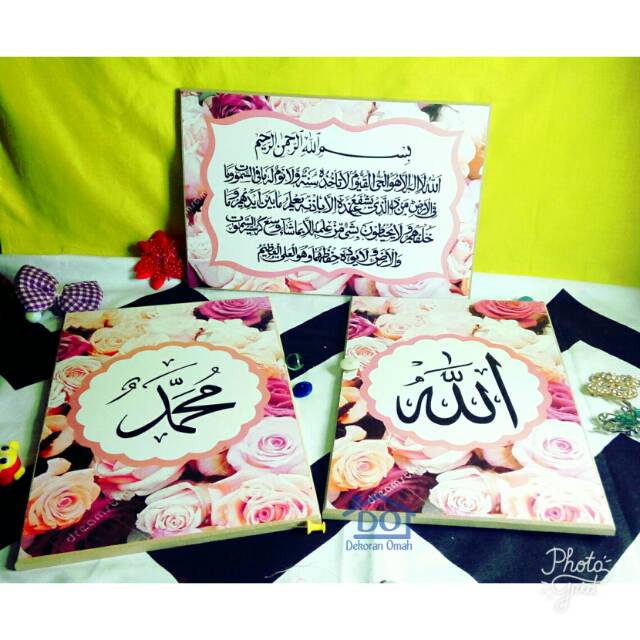 بسم الله الرحمن الرحيم
الله لا اله الا هو الحي القيوم لا تأخذه سنة ولا نوم له ما في السموت وما
في الارض من ذا الذي يشفع عنده الا باذنه يعلم ما بين أيديهم وما
خلفهم ولا يحيطون بشئ من علمه الا بما شاء وسع كرسيه السموت
والارض ولا يؤده حفظهما وهو العلي العظيم
محمد
الله
DO
Dekoran Omah
Photo
Grid